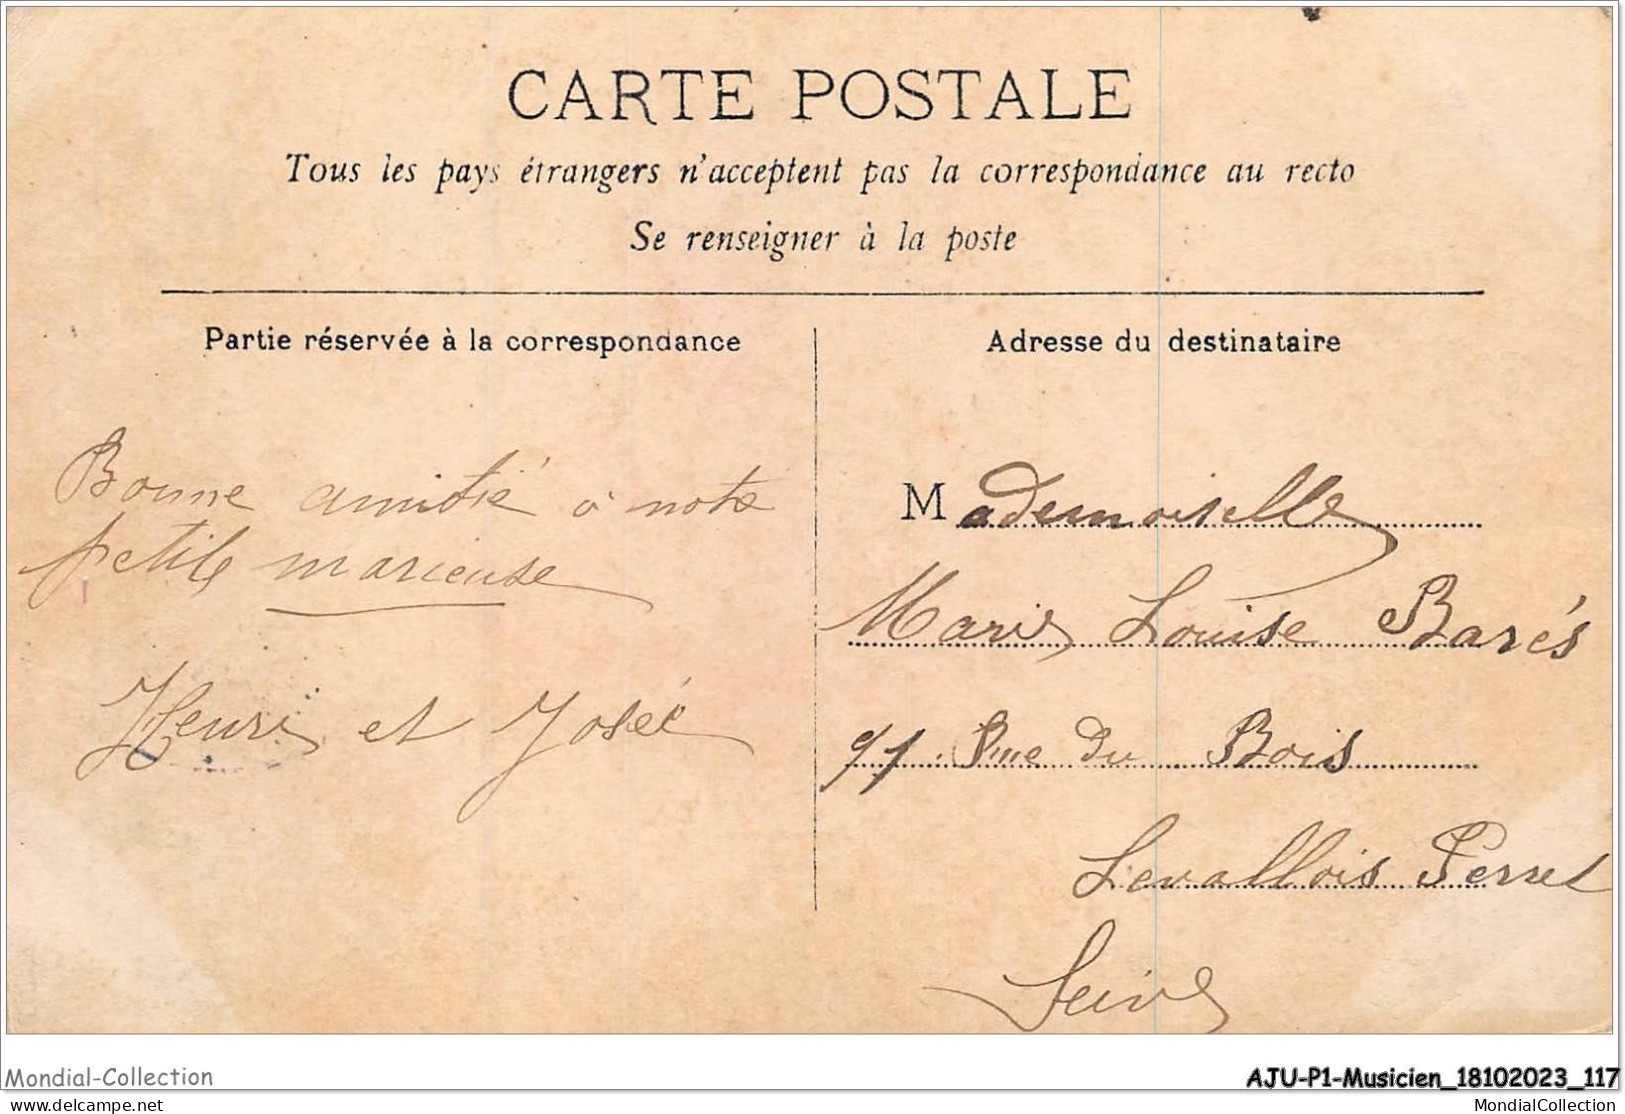 CARTE POSTALE
Tous les pays étrangers n'acceptent pas la correspondance au recto
Se renseigner à la poste
Partie réservée à la correspondance
Bonne amitié à notre
petite marieuse
Henri et José
Adresse du destinataire
Mademoiselle
Marie Louise Barés
91 Rue du Bois
Levallois Perret
Seine
Mondial-Collection
AJU-P1-Musicien_18102023_117
www.delcampe.net
MondialCollection